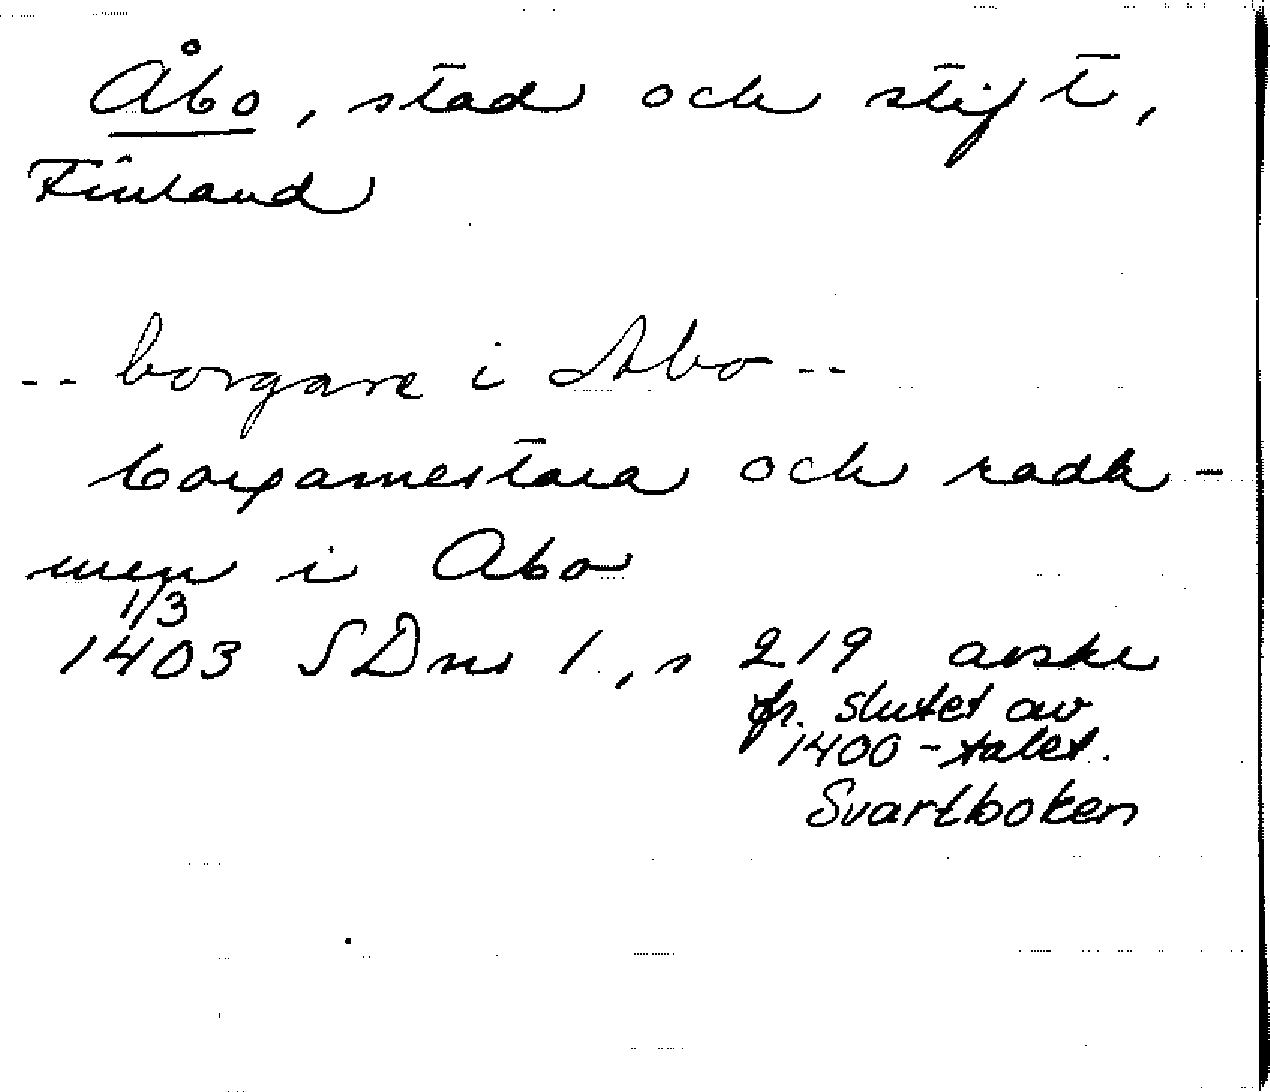 Åbo, stad och stift,
Finland
-- borgare i Abo --
borgamestara och radh-
men i Abo
1/3
1403 SDns 1, s 219 avskr
fr. slutet av
1400-talet.
Svartboken